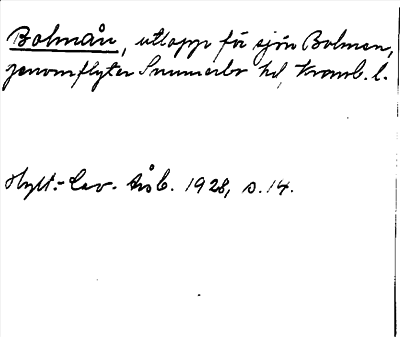 Bolmån, utlopp för sjön Bolmen,
genomflyter Sunnerbo hd, Kronob. l.
Hylt.-Cav. årsb. 1928, s. 14.